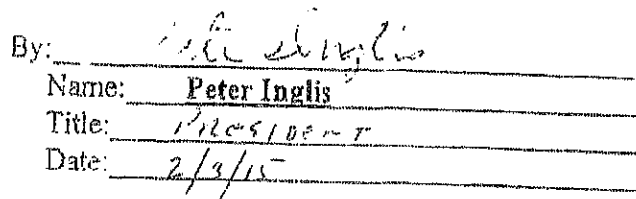 By: Peter Inglis
Name: Peter Inglis
Title: PRESIDENT
Date: 2/9/15